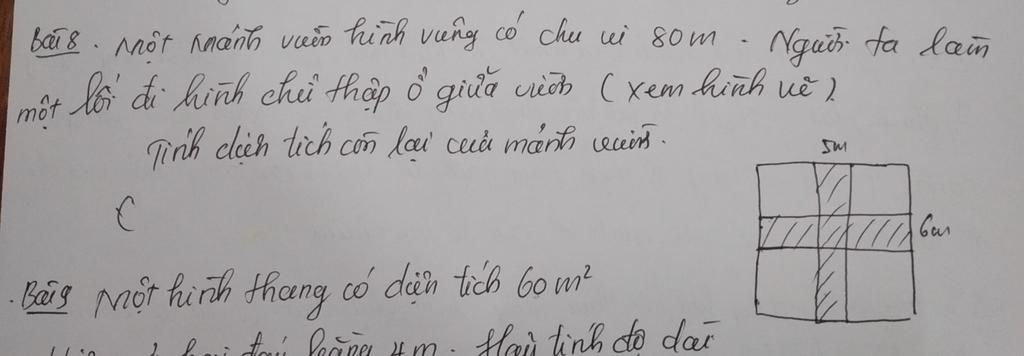 Bài 8. Một mảnh vườn hình vuông có chu vi 80m. Người ta làm
một lối đi hình chữ thập ở giữa vườn (xem hình vẽ).
Tính diện tích còn lại của mảnh vườn.
5m
6m
Bài 9 Một hình thang có diện tích 60m²
hai đáy bằng 4m. Hãy tính độ dài